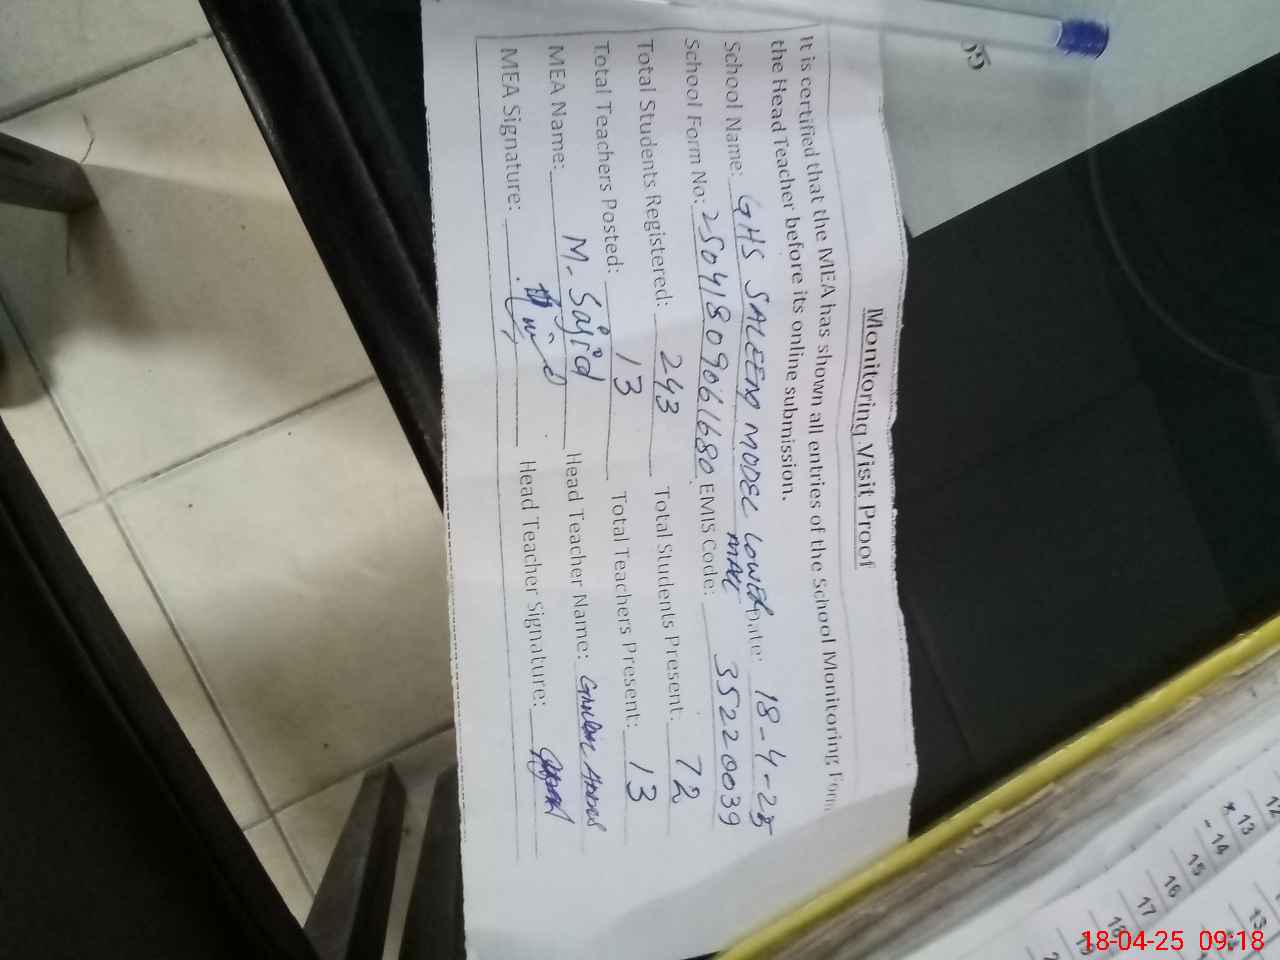 Monitoring Visit Proof
It is certified that the MEA has shown all entries of the School Monitoring Form
the Head Teacher before its online submission.
School Name: GHS SALEEM MODEL LOWER MALL Date: 18-4-25
School Form No: 25041809061680 EMIS Code: 35220039
Total Students Registered: 243 Total Students Present: 72
Total Teachers Posted: 13 Total Teachers Present: 13
MEA Name: M. Sajid Head Teacher Name: Abbas
MEA Signature: Head Teacher Signature:
12
* 13
- 14
15
16
17
18
19
2
13
18-04-25 09:18